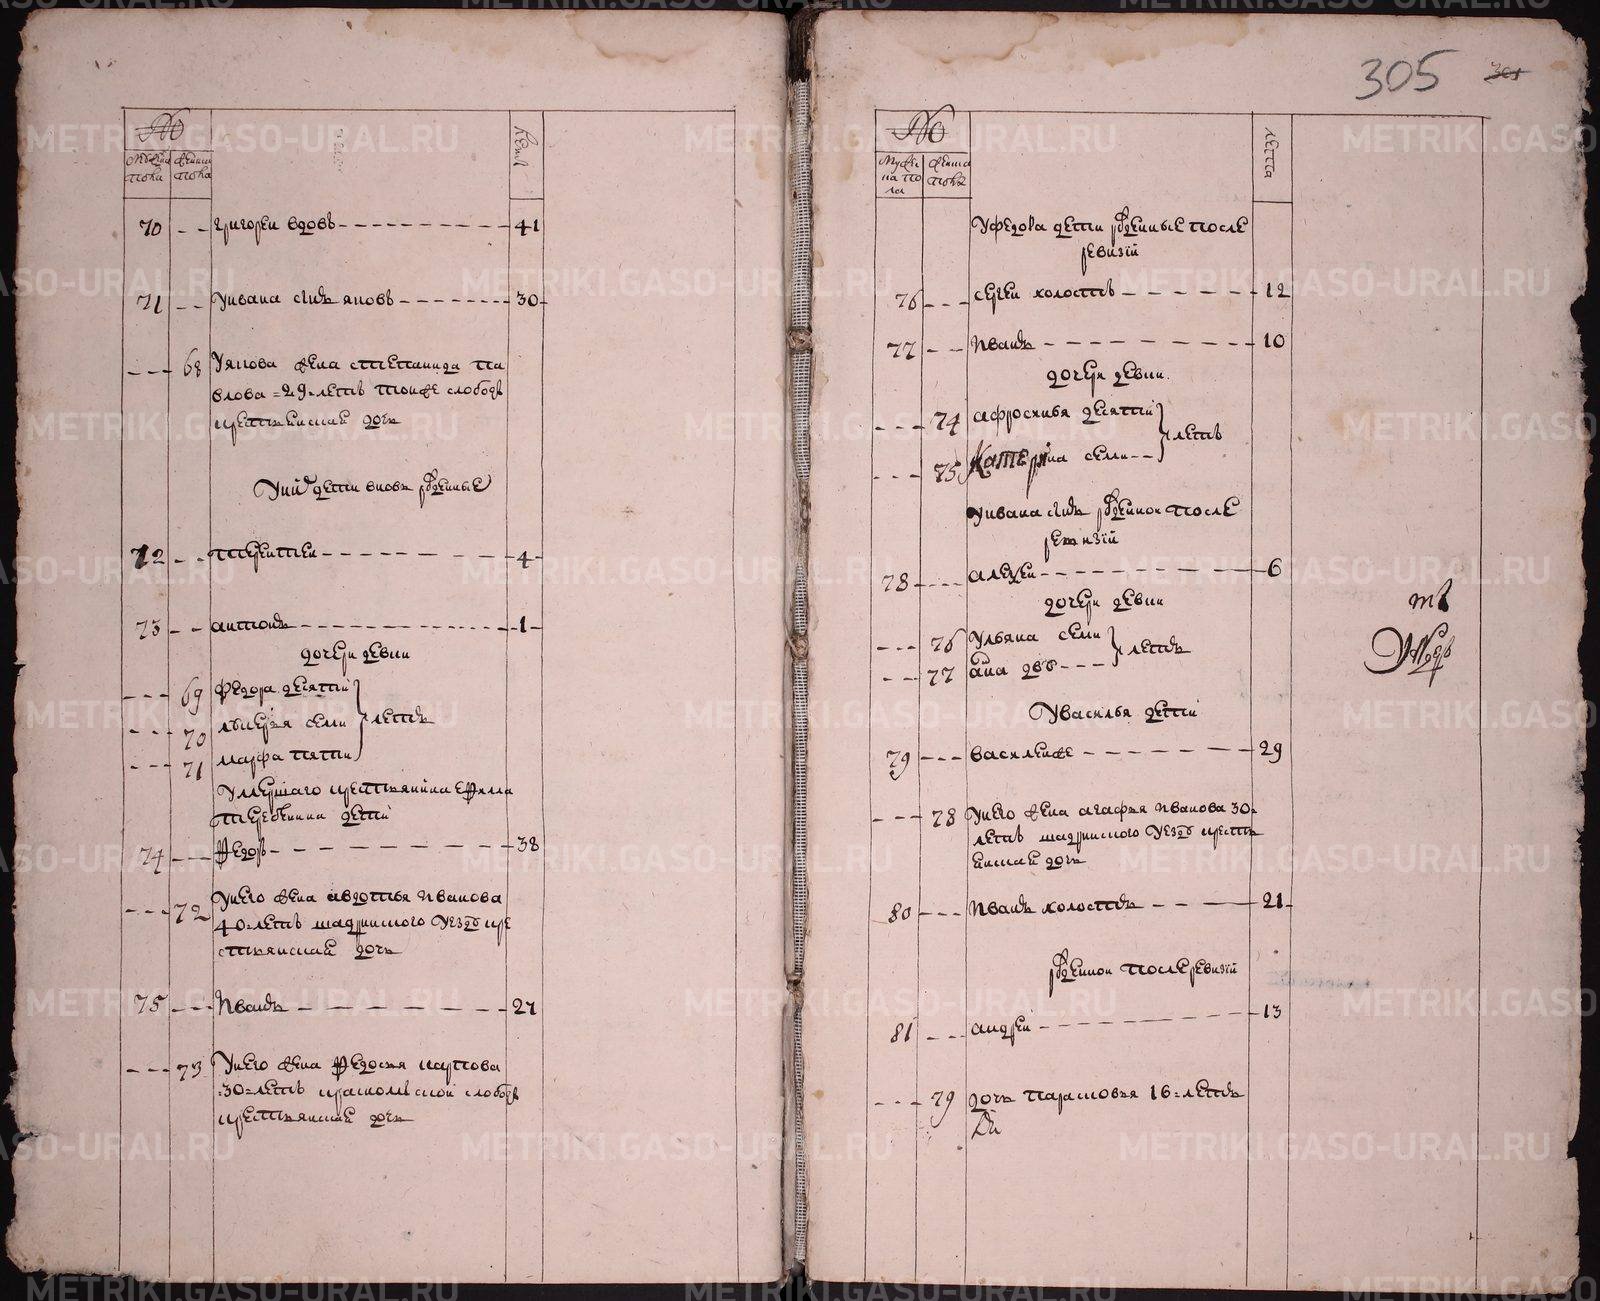 305
№
70 -- григореи вдовъ 41
71 -- уивана сынъ яковъ 30
--- 68 Уякова жена степанида па
влова = 29 = летъ тоиже слободы
крестьянская дочь
Уних дети вновь рожденные
72 -- терентеи 4
73 -- антонъ 1
дочери девки
--- 69 Федора десяти
--- 70 лукерья семи летъ
--- 71 марфа пяти
Умершаго крестьянина
дети
74 --- Федоръ 38
--- 72 Унего жена авдотья иванова
40 = летъ шадринского уезда кре
стьянская дочь
75 --- Иванъ 27
--- 73 Унего жена Федосья карпова
30 = летъ слободы
крестьянская дочь
№
Мужес
ка по
ла
лета
Уфедора дети рожденные после
ревизiи
76 --- сергеи холостъ 12
77 --- Иванъ 10
дочери девки
--- 74 афросинья десяти
--- 75 Катерина семи летъ
Уивана сынъ рожденной после
ревизiи
78 --- алексеи 6
дочери девки
--- 76 Ульяна семи
--- 77 анна двб летъ
Увасилья дети
79 --- василеиже 29
--- 78 Унего жена агафья иванова 30 =
летъ шадринского уезда кресть
янская дочь
80 --- Иванъ холостъ 21
рожденнои после ревизiи
81 --- андреи 13
--- 79 дочь парасковья 16 = летъ